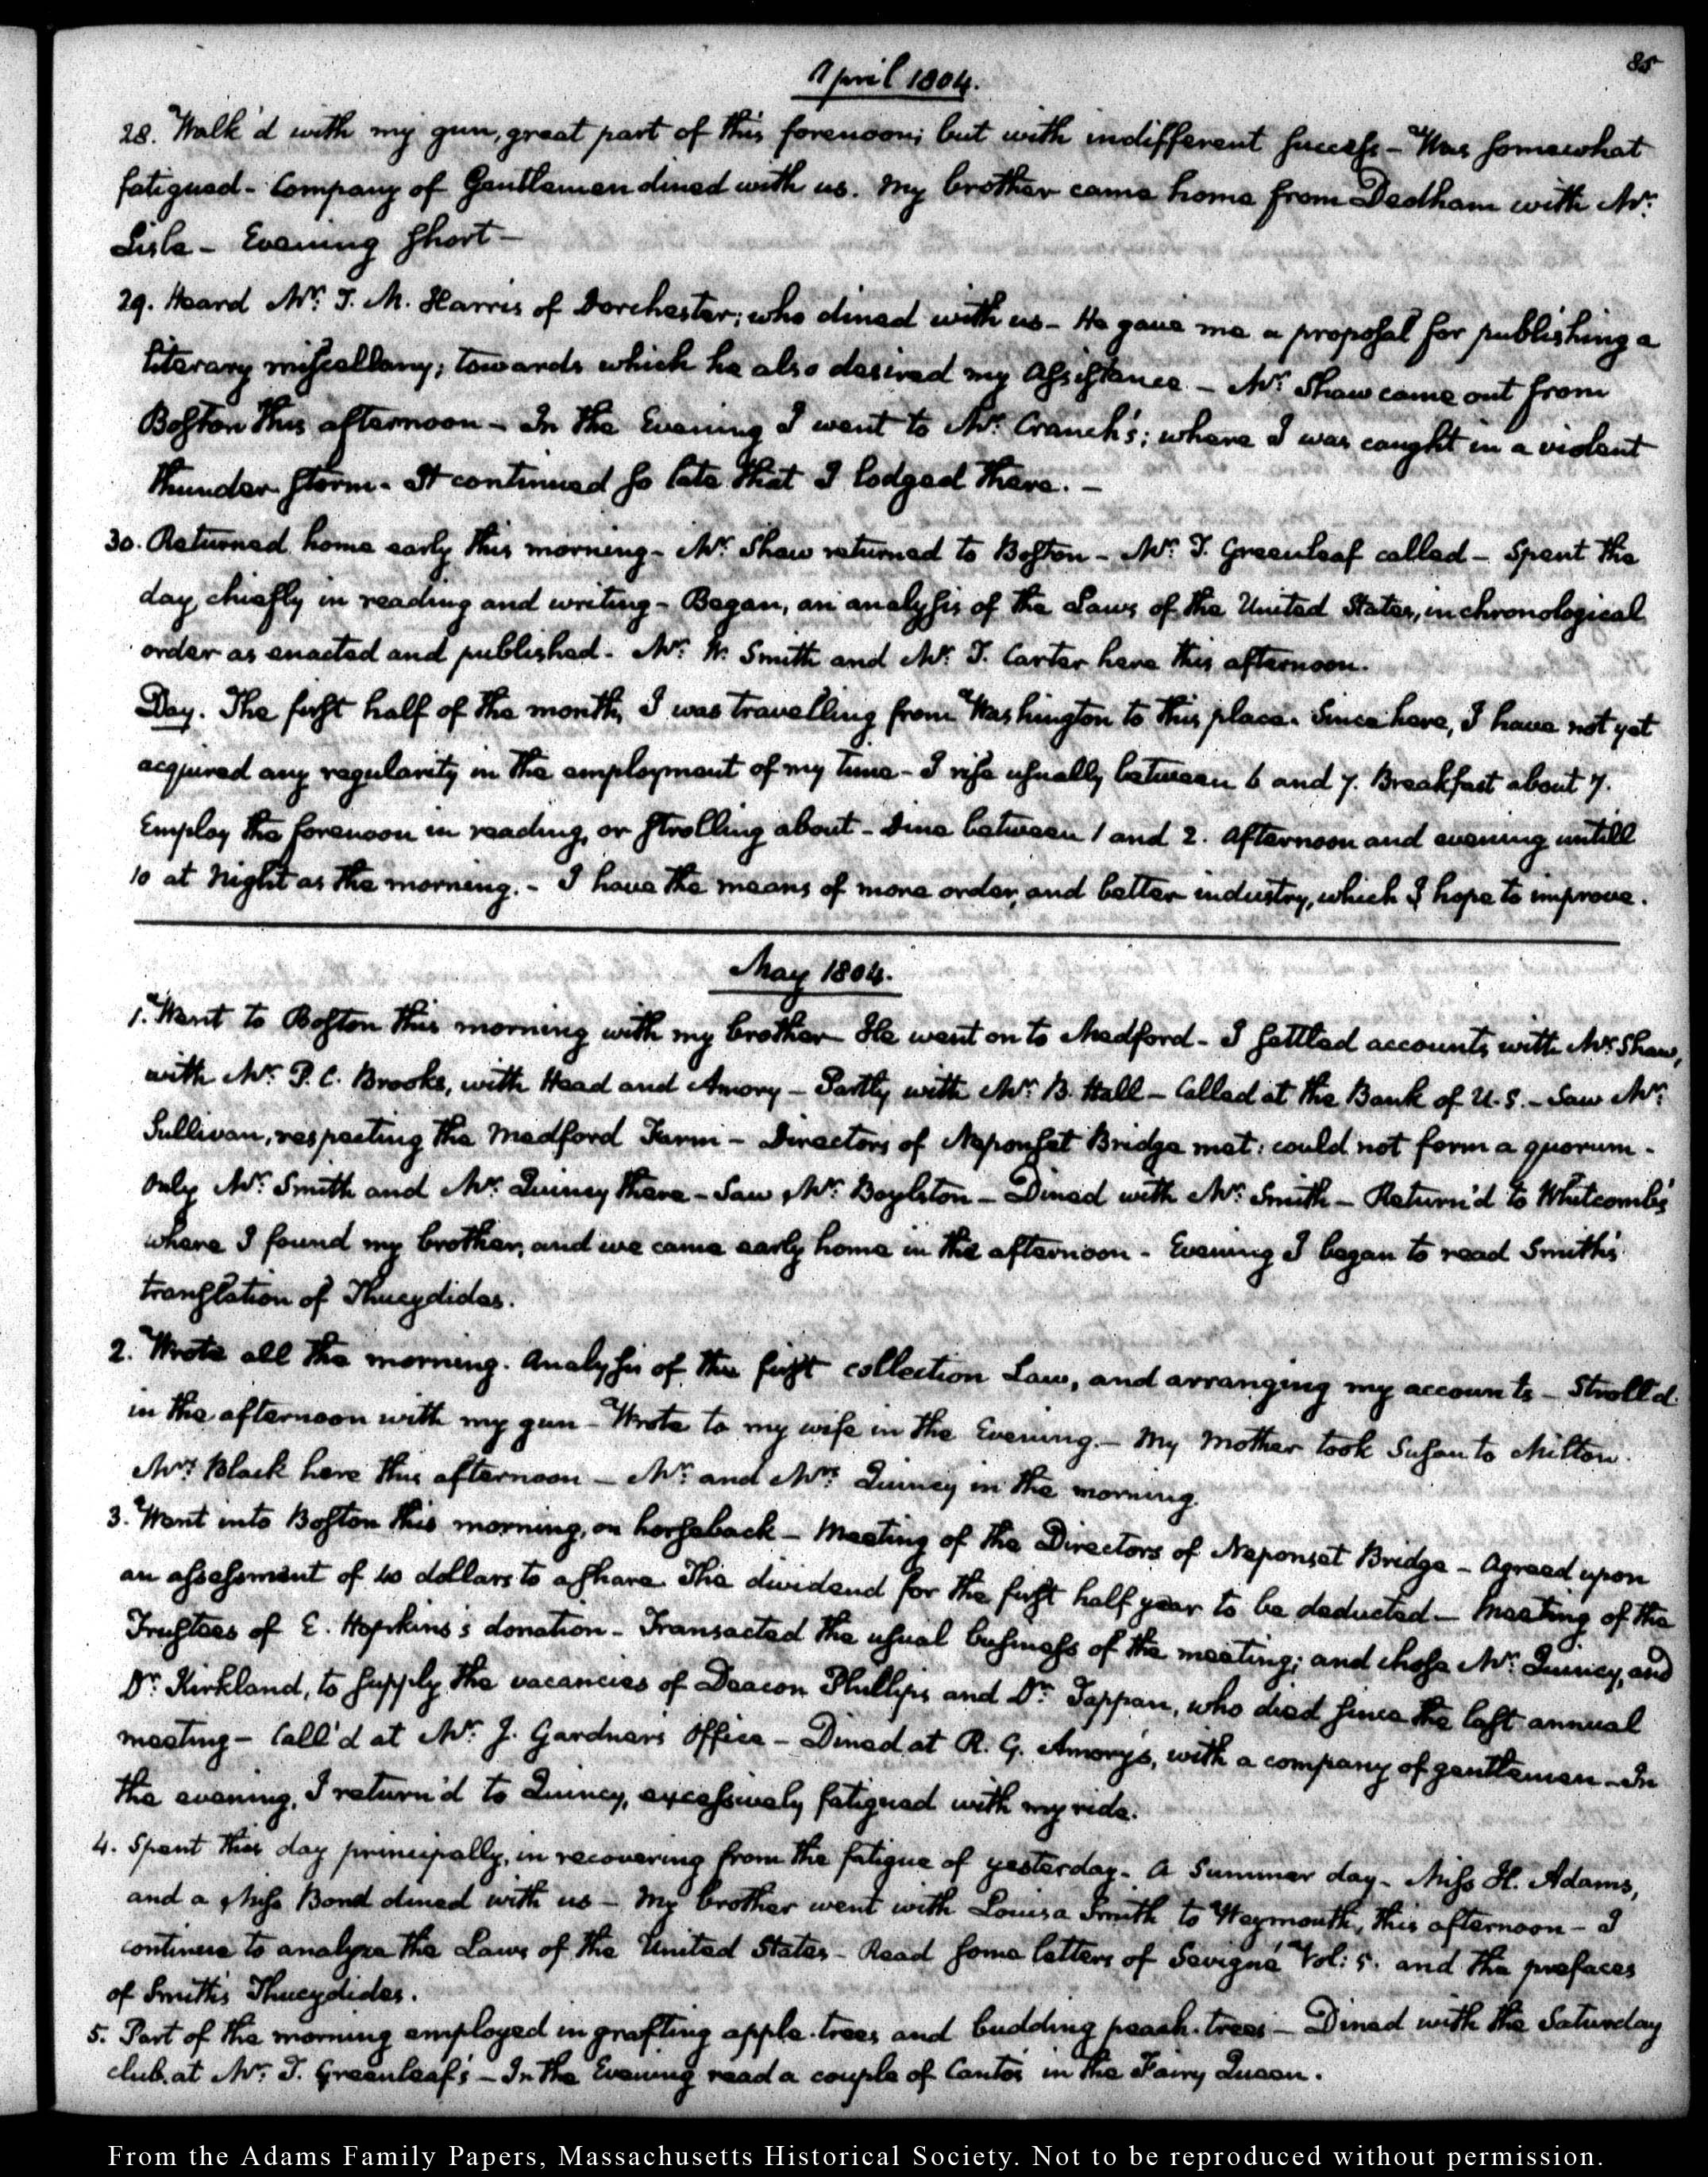 85
April 1804.
28. Walk'd with my gun, great part of this forenoon; but with indifferent success - Was somewhat
fatigued - Company of Gentlemen dined with us. My brother came home from Dedham with Mr:
Lisle - Evening short -
29. Heard Mr: T. M. Harris of Dorchester; who dined with us - He gave me a proposal for publishing a
literary miscellany; towards which he also desired my assistance - Mr: Shaw came out from
Boston this afternoon - In the Evening I went to Mr: Cranch's; where I was caught in a violent
thunder storm - It continued so late that I lodged there. -
30. Returned home early this morning - Mr: Shaw returned to Boston - Mr: T. Greenleaf called - Spent the
day, chiefly in reading and writing - Began, an analysis of the Laws of the United States, in chronological
order as enacted and published - Mr: W. Smith and Mr: T. Carter here this afternoon.
Day. The first half of the month, I was travelling from Washington to this place. Since here, I have not yet
acquired any regularity in the employment of my time - I rise usually between 6 and 7. Breakfast about 7.
Employ the forenoon in reading, or strolling about - Dine between 1 and 2. Afternoon and evening untill
10 at night as the morning. - I have the means of more order, and better industry, which I hope to improve.
May 1804.
1. Went to Boston this morning with my brother He went on to Medford - I settled accounts with Mr: Shaw,
with Mr: P. C. Brooks, with Head and Amory - Partly with Mr: B. Hall - Called at the Bank of U.S. - Saw Mr:
Sullivan, respecting the Medford Farm - Directors of Neponset Bridge met: could not form a quorum -
Only Mr: Smith and Mr: Quincy there - Saw Mr: Boylston - Dined with Mr: Smith - Return'd to Whitcomb's
where I found my brother, and we came early home in the afternoon - Evening I began to read Smith's
translation of Thucydides.
2. Wrote all the morning. Analysis of the first collection Law, and arranging my accounts - Stroll'd
in the afternoon with my gun - Wrote to my wife in the Evening. - My Mother took Susan to Milton.
Mrs: Black here this afternoon - Mr: and Mrs: Quincy in the morning.
3. Went into Boston this morning, on horseback - Meeting of the Directors of Neponset Bridge - Agreed upon
an assessment of 40 dollars to a share The dividend for the first half year to be deducted - Meeting of the
Trustees of E. Hopkins's donation - Transacted the usual business of the meeting; and chose Mr: Quincy, and
Dr: Kirkland, to supply the vacancies of Deacon Phillips and Dr: Tappan, who died since the last annual
meeting - Call'd at Mr: J. Gardner's Office - Dined at R. G. Amory's, with a company of gentlemen - In
the evening, I return'd to Quincy, excessively fatigued with my ride.
4. Spent this day principally, in recovering from the fatigue of yesterday - A Summer day - Miss H. Adams,
and a Miss Bond dined with us - My brother went with Louisa Smith to Weymouth, this afternoon - I
continue to analyze the Laws of the United States - Read some letters of Sevigné Vol: 5. and the prefaces
of Smith's Thucydides.
5. Part of the morning employed in grafting apple-trees and budding peach-trees - Dined with the Saturday
club at Mr: T. Greenleaf's - In the Evening read a couple of Cantos in the Fairy Queen.
From the Adams Family Papers, Massachusetts Historical Society. Not to be reproduced without permission.